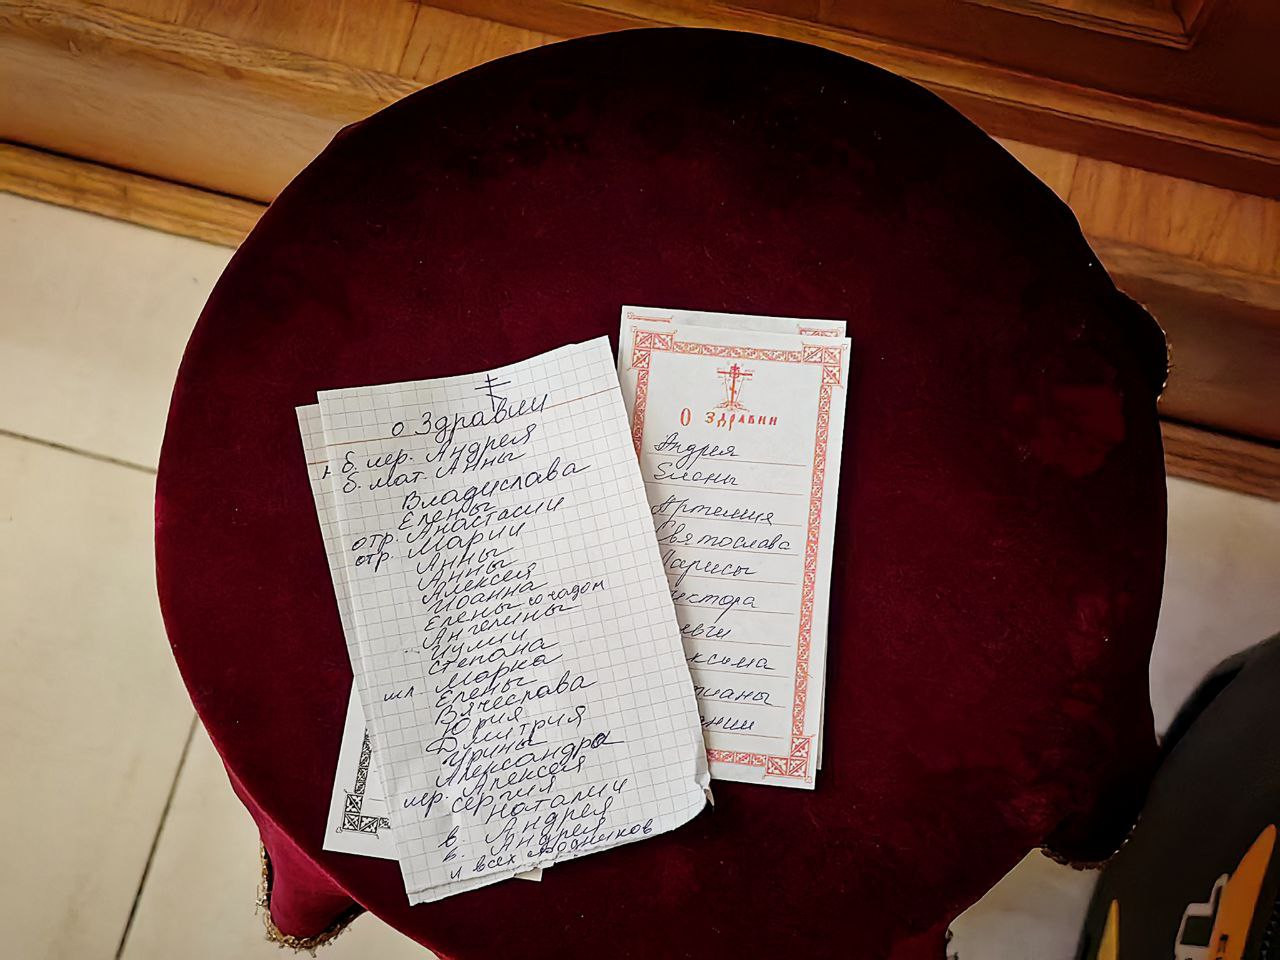 о Здравии
б. иер. Андрея
б. мат. Анны
Владислава
Елены
отр. Анастасии
отр. Марии
Анны
Анны
Алексея
Иоанна
Елены со чадом
Ангелины
Иулии
Степана
мл. Марка
Елены
Вячеслава
Юрия
Димитрия
Ирины
Александра
иер. Алексея
Сергия
Наталии
в. Андрея
в. Андрея
и всех сродников
О ЗДРАВИИ
Андрея
Елены
Артемия
Святослава
Ларисы